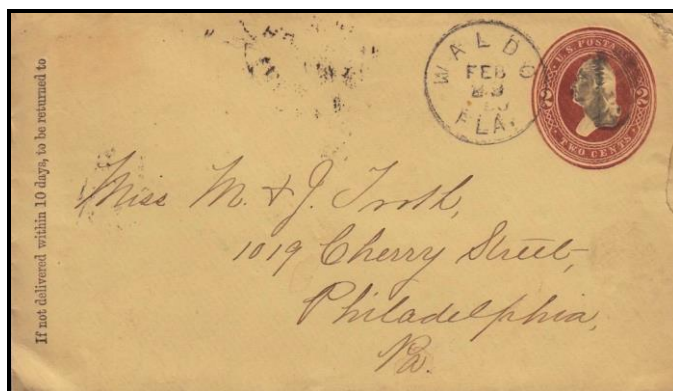 If not delivered within 10 days, to be returned to
WALDO
FEB
FLA.
U.S. POSTAGE
2 2
TWO CENTS
Miss M. & J. Troth,
1019 Cherry Street,
Philadelphia,
Pa.